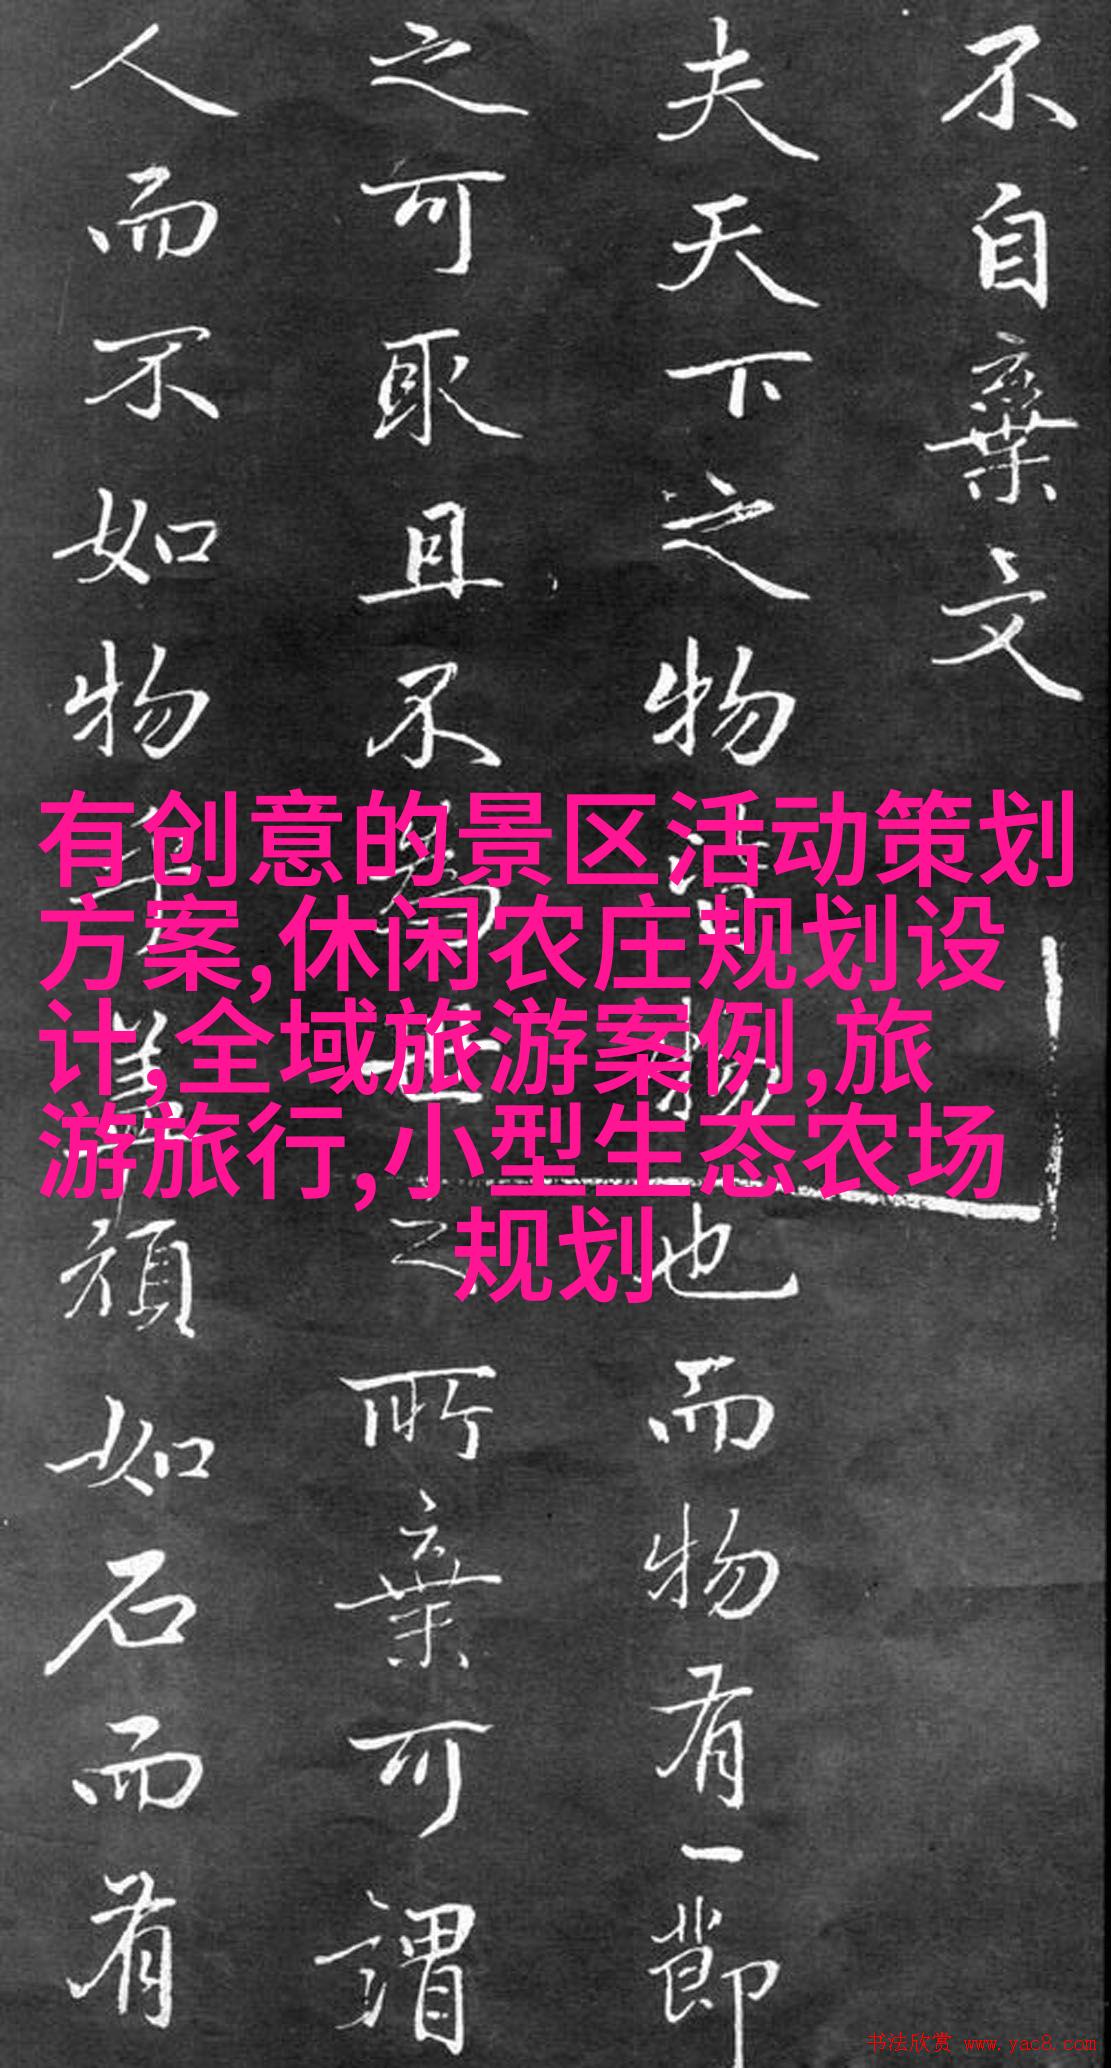 不自棄文
夫天下之物皆物也而物有一節
之可取且不為世之所棄可謂
人而不如物乎蓋頑如石而有
有创意的景区活动策划
方案,休闲农庄规划设
计,全域旅游案例,旅
游旅行,小型生态农场
规划
书法欣赏 www.yac8.com